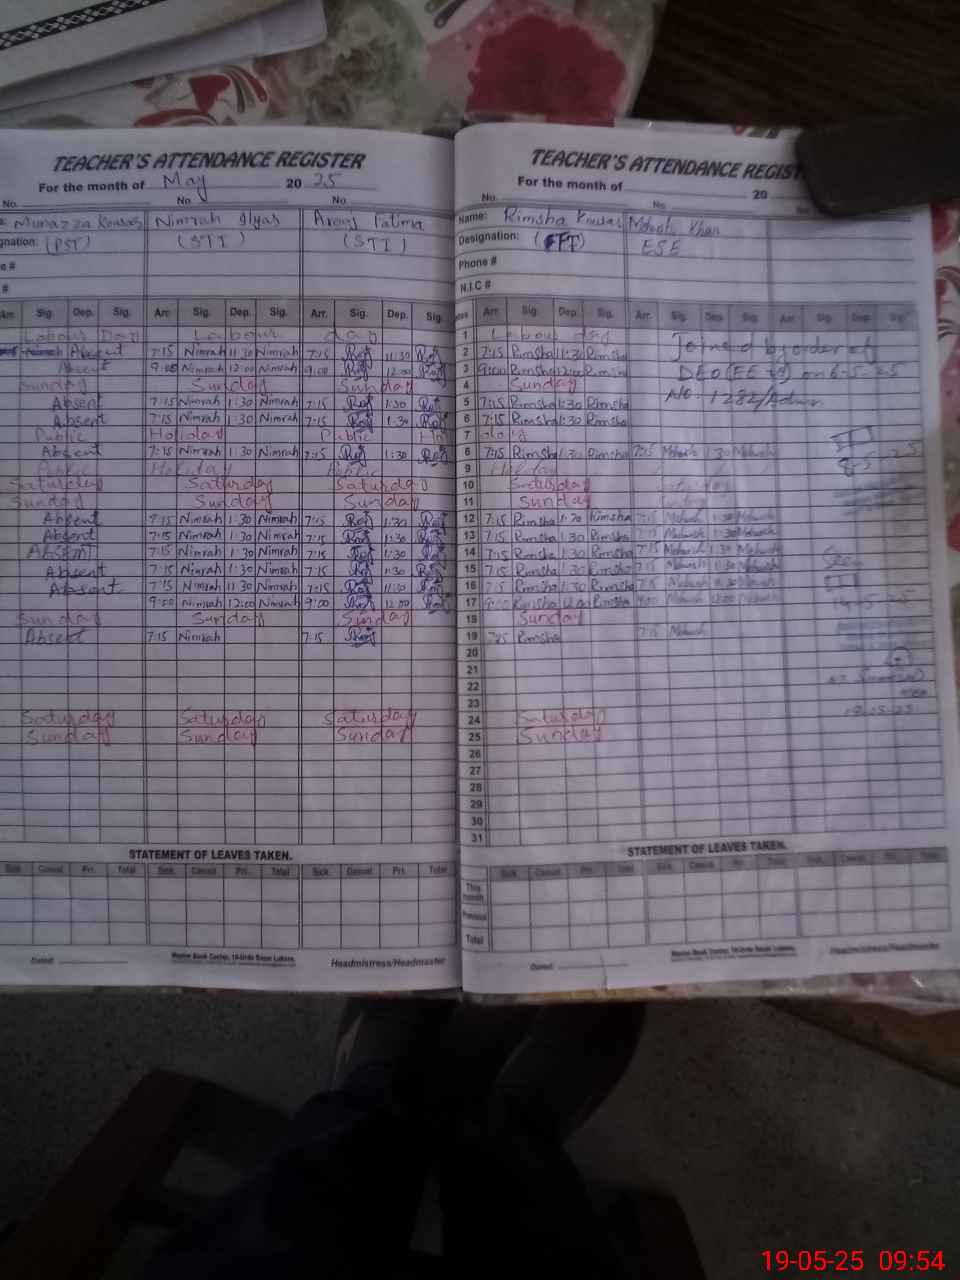 TEACHER'S ATTENDANCE REGISTER
For the month of May 2025
No. No. No.
Munazza Kousar Nimrah Ilyas Arooj Fatima
gnation: (PST) (STI) (STI)
e #
#
Arr. Sig. Dep. Sig. Arr. Sig. Dep. Sig. Arr. Sig. Dep. Sig.
Labour Day Labour day
Absent 7:15 Nimrah 11:30 Nimrah 7:15 11:30
Absent 9:00 Nimrah 12:00 Nimrah 9:00 12:00
Sunday Sunday Sunday
Absent 7:15 Nimrah 1:30 Nimrah 7:15 1:30
Absent 7:15 Nimrah 1:30 Nimrah 7:15 1:30
Public Holiday Public Ho
Absent 7:15 Nimrah 1:30 Nimrah 7:15 1:30
Public Holiday Public
Saturday Saturday Saturday
Sunday Sunday Sunday
Absent 7:15 Nimrah 1:30 Nimrah 7:15 1:30
Absent 7:15 Nimrah 1:30 Nimrah 7:15 1:30
Absent 7:15 Nimrah 1:30 Nimrah 7:15 1:30
Absent 7:15 Nimrah 1:30 Nimrah 7:15 1:30
Absent 7:15 Nimrah 11:30 Nimrah 7:15 11:30
9:00 Nimrah 12:00 Nimrah 9:00 12:00
Sunday Sunday Sunday
Absent 7:15 Nimrah 7:15
Saturday Saturday Saturday
Sunday Sunday Sunday
STATEMENT OF LEAVES TAKEN.
Sick. Casual Pri. Total Sick. Casual Pri. Total Sick. Casual Pri. Total
Dated: Master Book Center, 19-Urdu Bazar Lahore. Headmistress/Headmaster
TEACHER'S ATTENDANCE REGIST
For the month of 20
No. No. No.
Name: Rimsha Kousar Mehwish Khan
Designation: ESE
Phone #
N.I.C #
Arr. Sig. Dep. Sig. Arr. Sig. Dep. Sig. Arr. Sig. Dep. Sig.
1 Labour day
2 7:15 Rimsha 11:30 Rimsha Joined by order of
3 9:00 Rimsha 12:00 Rimsha DEO (EE-) on 6-5-25
4 Sunday
5 7:15 Rimsha 1:30 Rimsha No. 1282/Admn
6 7:15 Rimsha 1:30 Rimsha
7 oliday
8 7:15 Rimsha 1:30 Rimsha 7:15 Mehwish 1:30 Mehwish 8-5-25
9 Holiday
10 Saturday Saturday
11 Sunday Sunday
12 7:15 Rimsha 1:30 Rimsha 7:15 Mehwish 1:30 Mehwish
13 7:15 Rimsha 1:30 Rimsha 7:15 Mehwish 1:30 Mehwish
14 7:15 Rimsha 1:30 Rimsha 7:15 Mehwish 1:30 Mehwish
15 7:15 Rimsha 1:30 Rimsha 7:15 Mehwish 1:30 Mehwish
16 7:15 Rimsha 11:30 Rimsha 7:15 Mehwish 11:30 Mehwish
17 9:00 Rimsha 12:00 Rimsha 9:00 Mehwish 12:00 Mehwish
18 Sunday
19 7:15 Rimsha 7:15 Mehwish
20
21
22
23 19-05-25
24 Saturday
25 Sunday
26
27
28
29
30
31
STATEMENT OF LEAVES TAKEN.
Sick. Casual Pri. Total Sick. Casual Pri. Total Sick. Casual Pri. Total
This month
Previous
Total
Dated: Master Book Center, 19-Urdu Bazar Lahore. Headmistress/Headmaster
19-05-25 09:54